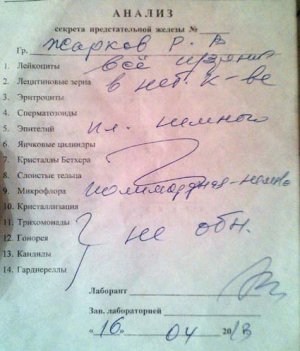 АНАЛИЗ
секрета предстательной железы №
Гр. Жарков Р. В
1. Лейкоциты всё
2. Лецитиновые зерна в неб. к-ве
3. Эритроциты
4. Сперматозоиды
5. Эпителий пл. немного
6. Яичковые цилиндры
7. Кристаллы Бетхера
8. Слоистые тельца
9. Микрофлора полиморфная-немно
10. Кристаллизация
11. Трихомонады
12. Гонорея не обн.
13. Кандиды
14. Гарднереллы
Лаборант
Зав. лабораторией
«16» 04 2013